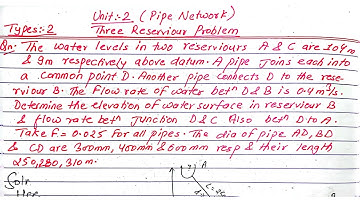 Unit:-2 (Pipe Network)
Types:-2 Three Reserviour Problem
Qn: The water levels in two reserviours A & C are 104m
& 91m respectively above datum. A pipe joins each into
a common point D. Another pipe connects D to the rese-
rviour B. The flow rate of water betn D & B is 0.4 m³/s.
Determine the elevation of water surface in reserviour B
& flow rate betn junction D & C Also betn D to A.
Take F = 0.025 for all pipes. The dia of pipe AD, BD
& CD are 300mm, 400mm & 600mm resp & their length
250, 280, 310m.
Soln
A